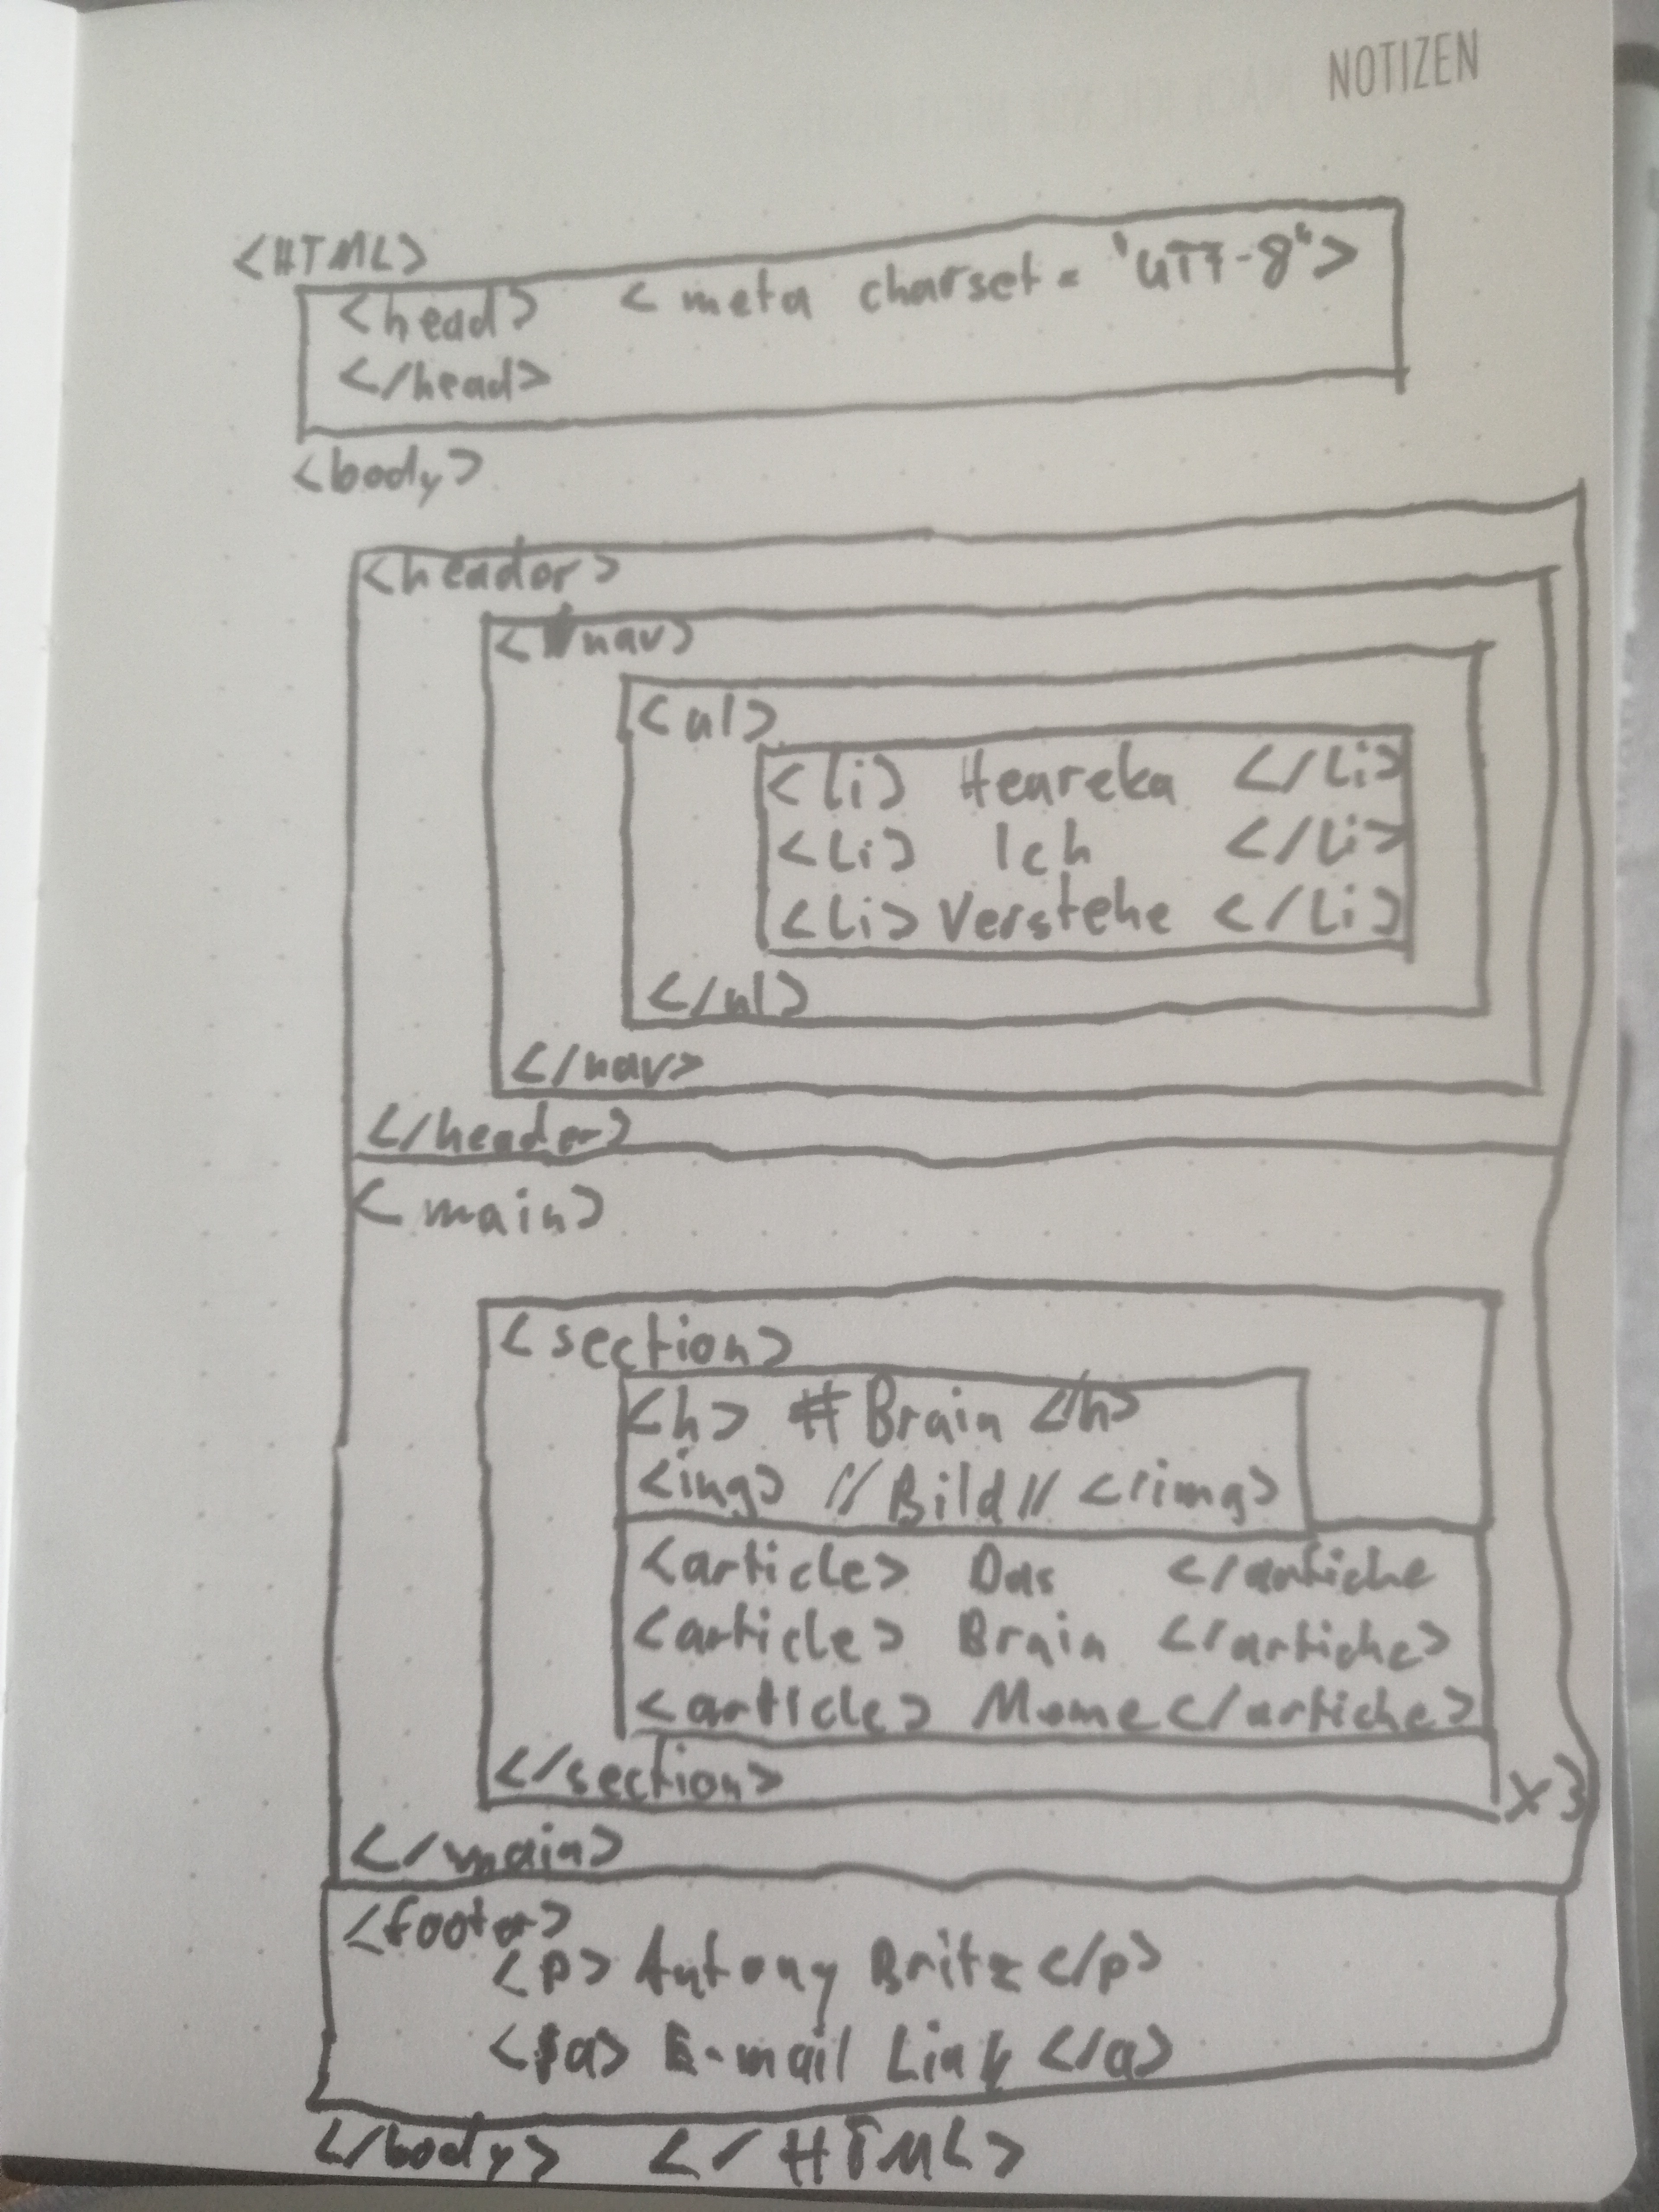 NOTIZEN
<HTML>
<head> <meta charset = "UTF-8">
</head>
<body>
<header>
<nav>
<ul>
<li> Heureka </li>
<li> Ich </li>
<li> Verstehe </li>
</ul>
</nav>
</header>
<main>
<section>
<h> # Brain </h>
<img> // Bild // </img>
<article> Das </article
<article> Brain </article>
<article> Meme </article>
</section>
x3
</main>
<footer>
<p> Antony Britz </p>
<a> E-mail Link </a>
</body> </HTML>